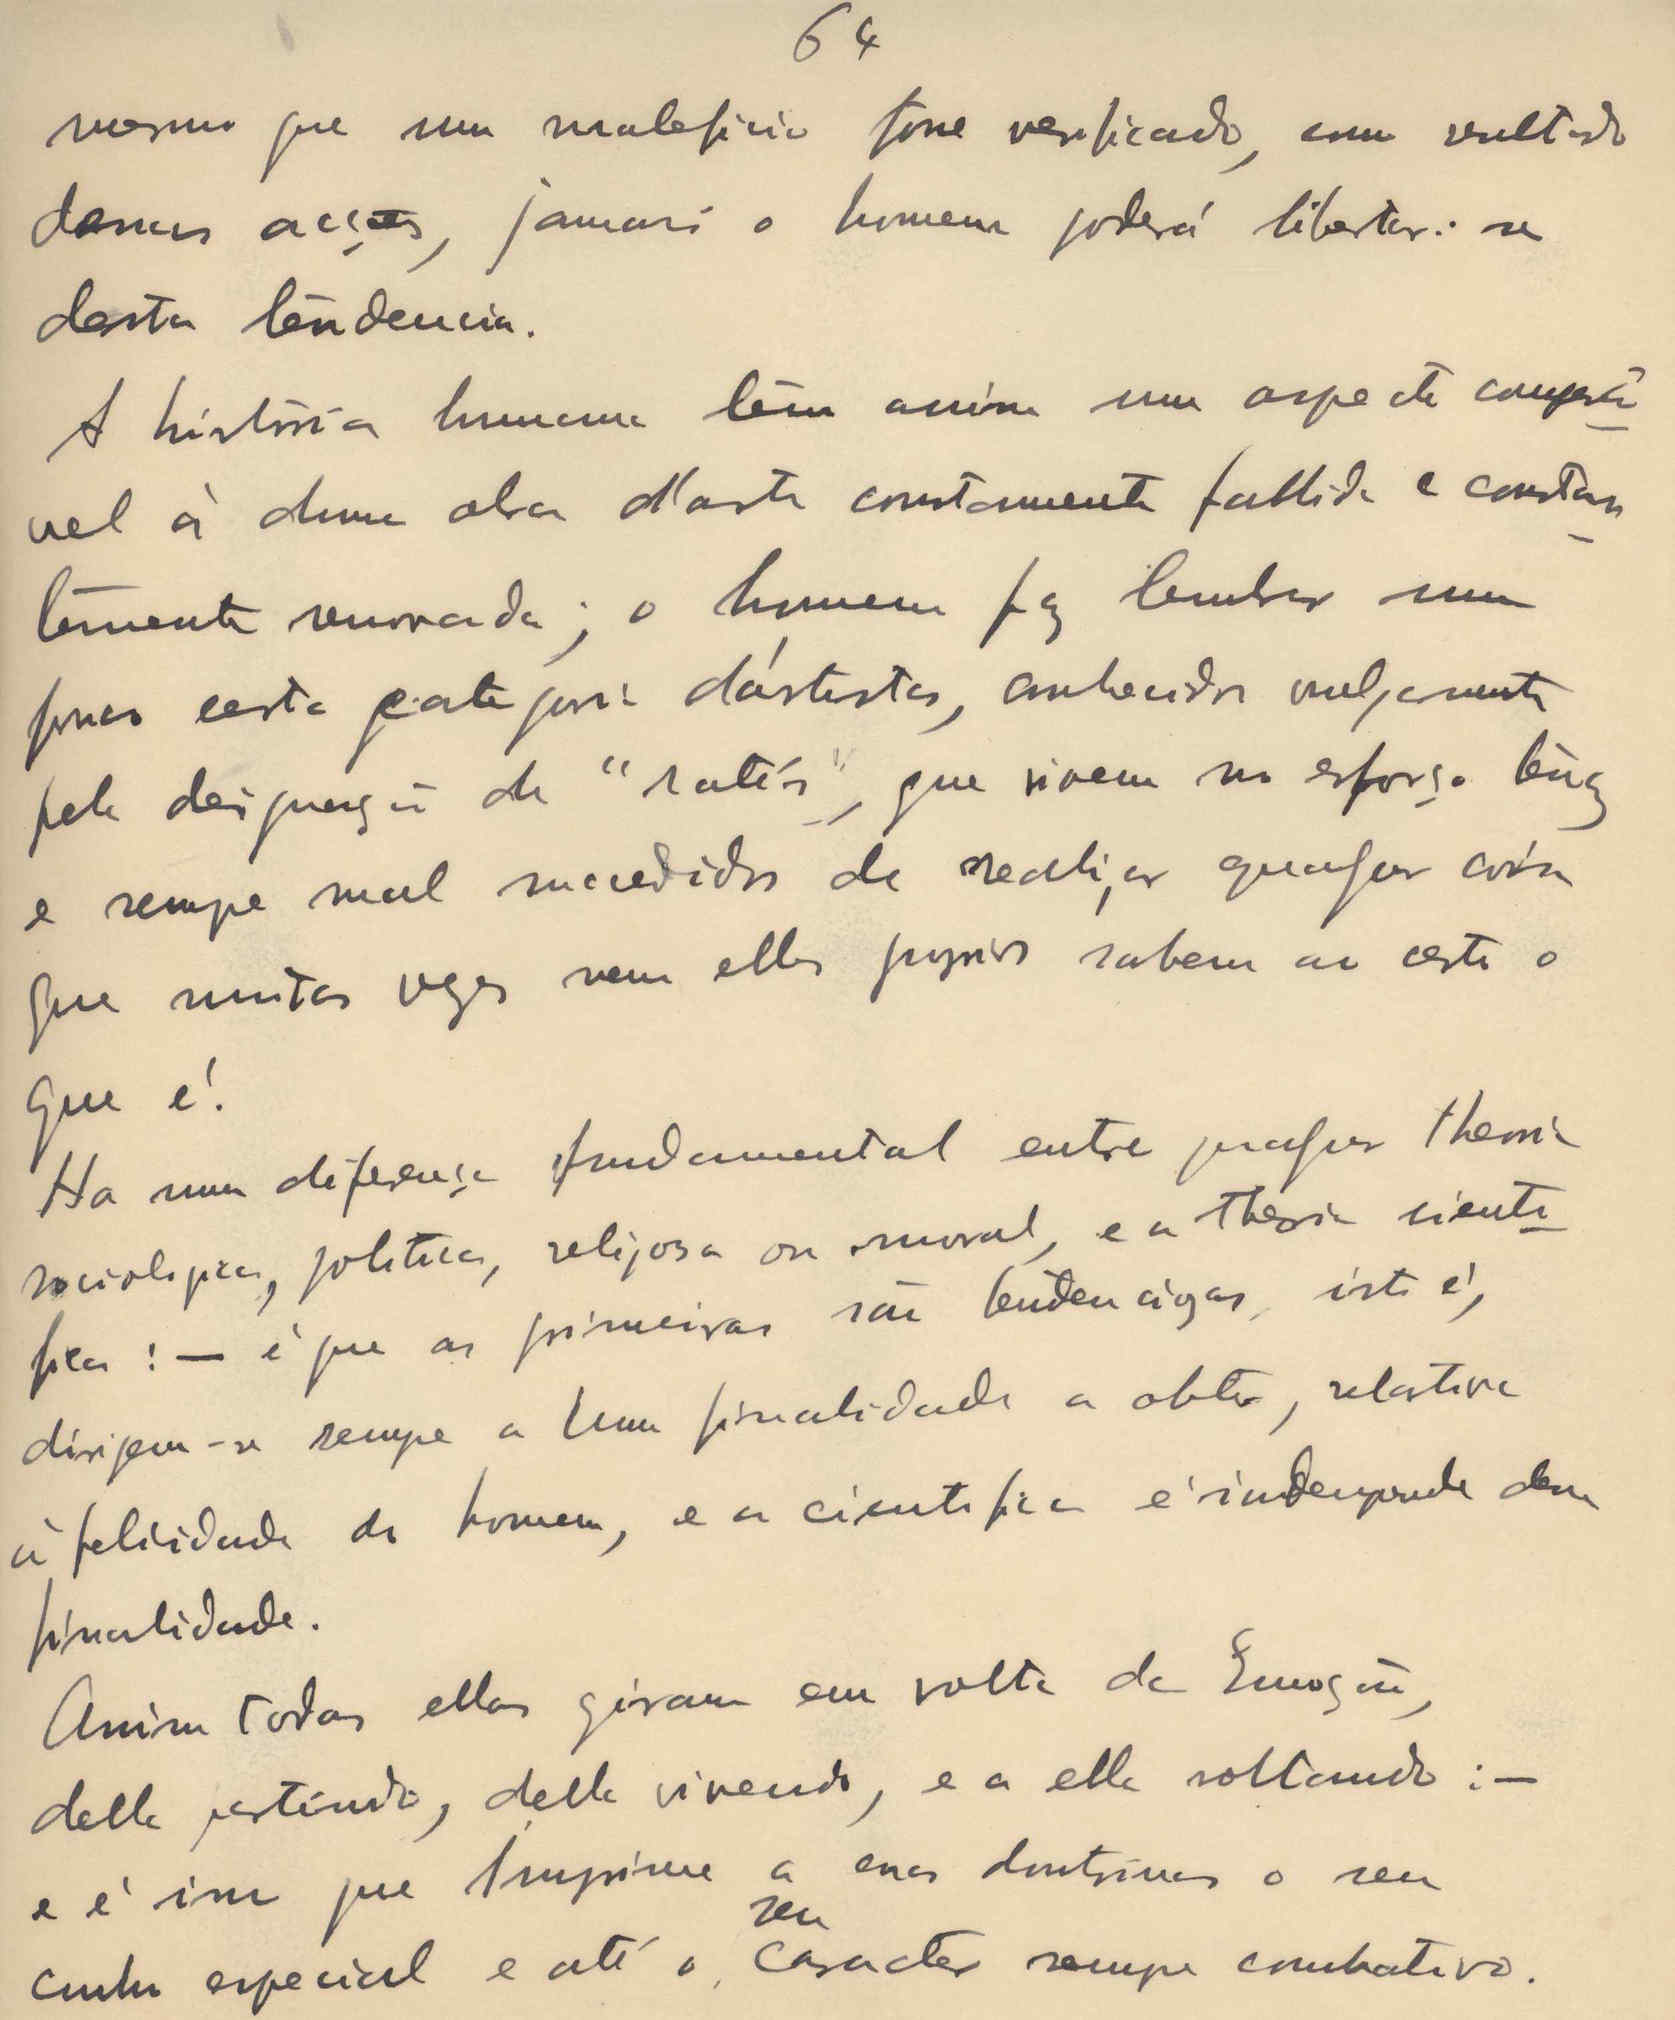 64
mesmo que um maleficio fosse verificado, como resultado
dessas acções, jamais o homem poderá libertar-se
desta tendencia.
A história humana tem assim um aspecto compará-
vel á duma obra d'arte constantemente fallida e constan-
temente renovada; o homem faz lembrar uma
certa categoria d'ártistas, conhecidos vulgarmente
pela designação de "ratés", que vivem no esforço tenaz
e sempre mal succedidos de realizar qualquer coisa
que muitas vezes nem elles proprios sabem ao certo o
que é.
Ha uma diferença fundamental entre qualquer theoria
sociologica, politica, religiosa ou moral, e a theoria cienti-
fica : — é que as primeiras são tendenciosas, isto é,
dirijem-se sempre a uma finalidade a obter, relativa
á felicidade do homem, e a cientifica é independente dessa
finalidade.
Assim todas ellas giram em volta da Emoção,
della partindo, della vivendo, e a ella voltando : —
e é isso que imprime a essas doutrinas o seu
cunho especial e até o seu caracter sempre combativo.